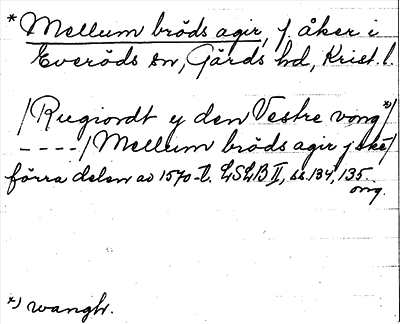 * Mellum bröds agir, f. åker i
Everöds sn, Gärds hd, Krist. l.
/Rugiordt y den Vestre vong*)/
----/Mellum bröds agir j ske/
förra delen av 1570-t. LSLB II, ss. 134, 135.
omg.
*) wangh.